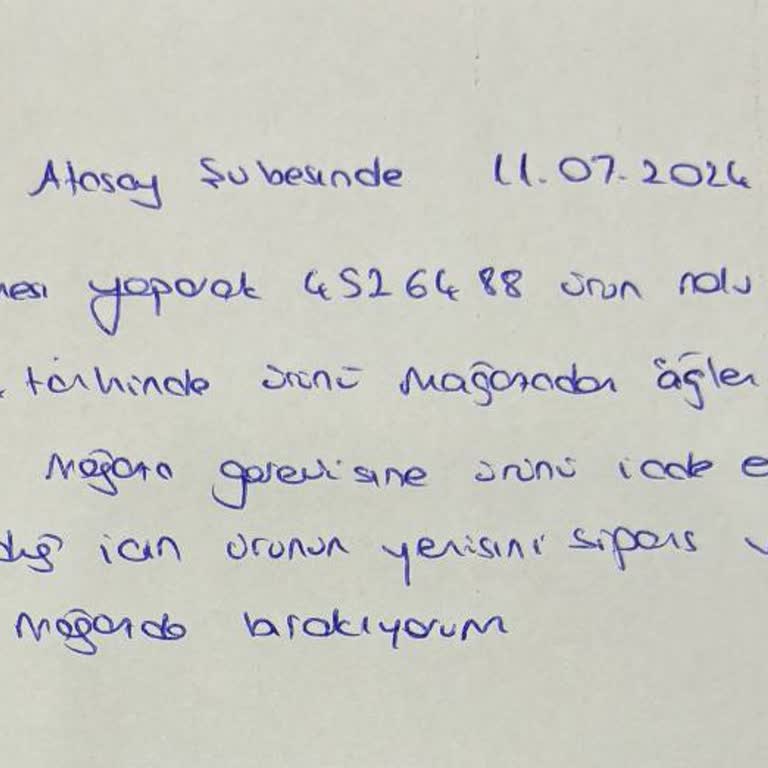 Atasay Şubesinde 11.07.2024
nesi yaparak 4526488 ürün nolu
tarihinde ürünü mağazadan öğlen
mağaza görevlisine ürünü iade e
için ürünün yenisini sipariş
mağazada bırakıyorum